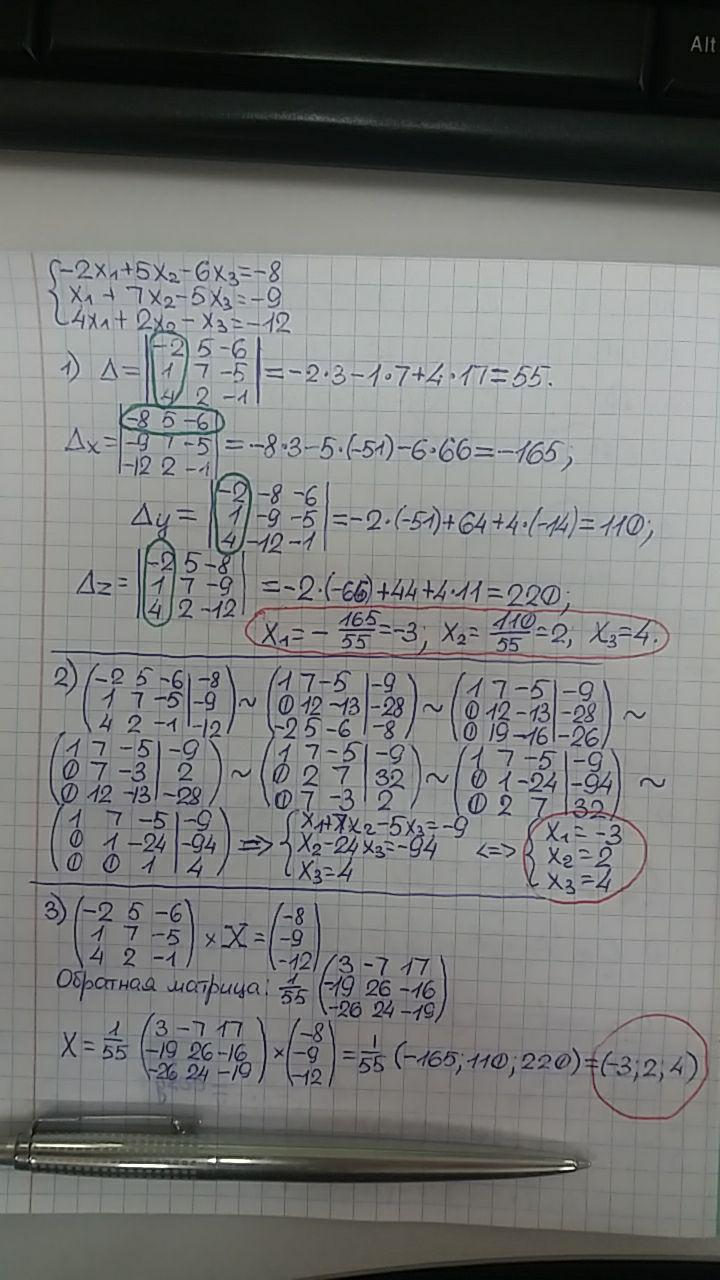 Alt
{-2x₁+5x₂-6x₃=-8
x₁+7x₂-5x₃=-9
4x₁+2x₂-x₃=-12
1) Δ=|-2 5 -6; 1 7 -5; 4 2 -1|=-2·3-1·7+4·17=55.
Δx=|-8 5 -6; -9 7 -5; -12 2 -1|=-8·3-5·(-51)-6·66=-165;
Δy=|-2 -8 -6; 1 -9 -5; 4 -12 -1|=-2·(-51)+64+4·(-14)=110;
Δz=|-2 5 -8; 1 7 -9; 4 2 -12|=-2·(-66)+44+4·11=220;
x₁=-165/55=-3; x₂=110/55=2; x₃=4.
2) (-2 5 -6|-8; 1 7 -5|-9; 4 2 -1|-12) ~ (1 7 -5|-9; 0 12 -13|-28; -2 5 -6|-8) ~ (1 7 -5|-9; 0 12 -13|-28; 0 19 -16|-26) ~
(1 7 -5|-9; 0 7 -3|2; 0 12 -13|-28) ~ (1 7 -5|-9; 0 2 7|32; 0 7 -3|2) ~ (1 7 -5|-9; 0 1 -24|-94; 0 2 7|32) ~
(1 7 -5|-9; 0 1 -24|-94; 0 0 1|4) => {x₁+7x₂-5x₃=-9; x₂-24x₃=-94; x₃=4 <=> {x₁=-3; x₂=2; x₃=4
3) (-2 5 -6; 1 7 -5; 4 2 -1) × X = (-8; -9; -12)
Обратная матрица: 1/55 (3 -7 17; -19 26 -16; -26 24 -19)
X=1/55 (3 -7 17; -19 26 -16; -26 24 -19) × (-8; -9; -12) = 1/55 (-165; 110; 220)=(-3; 2; 4)